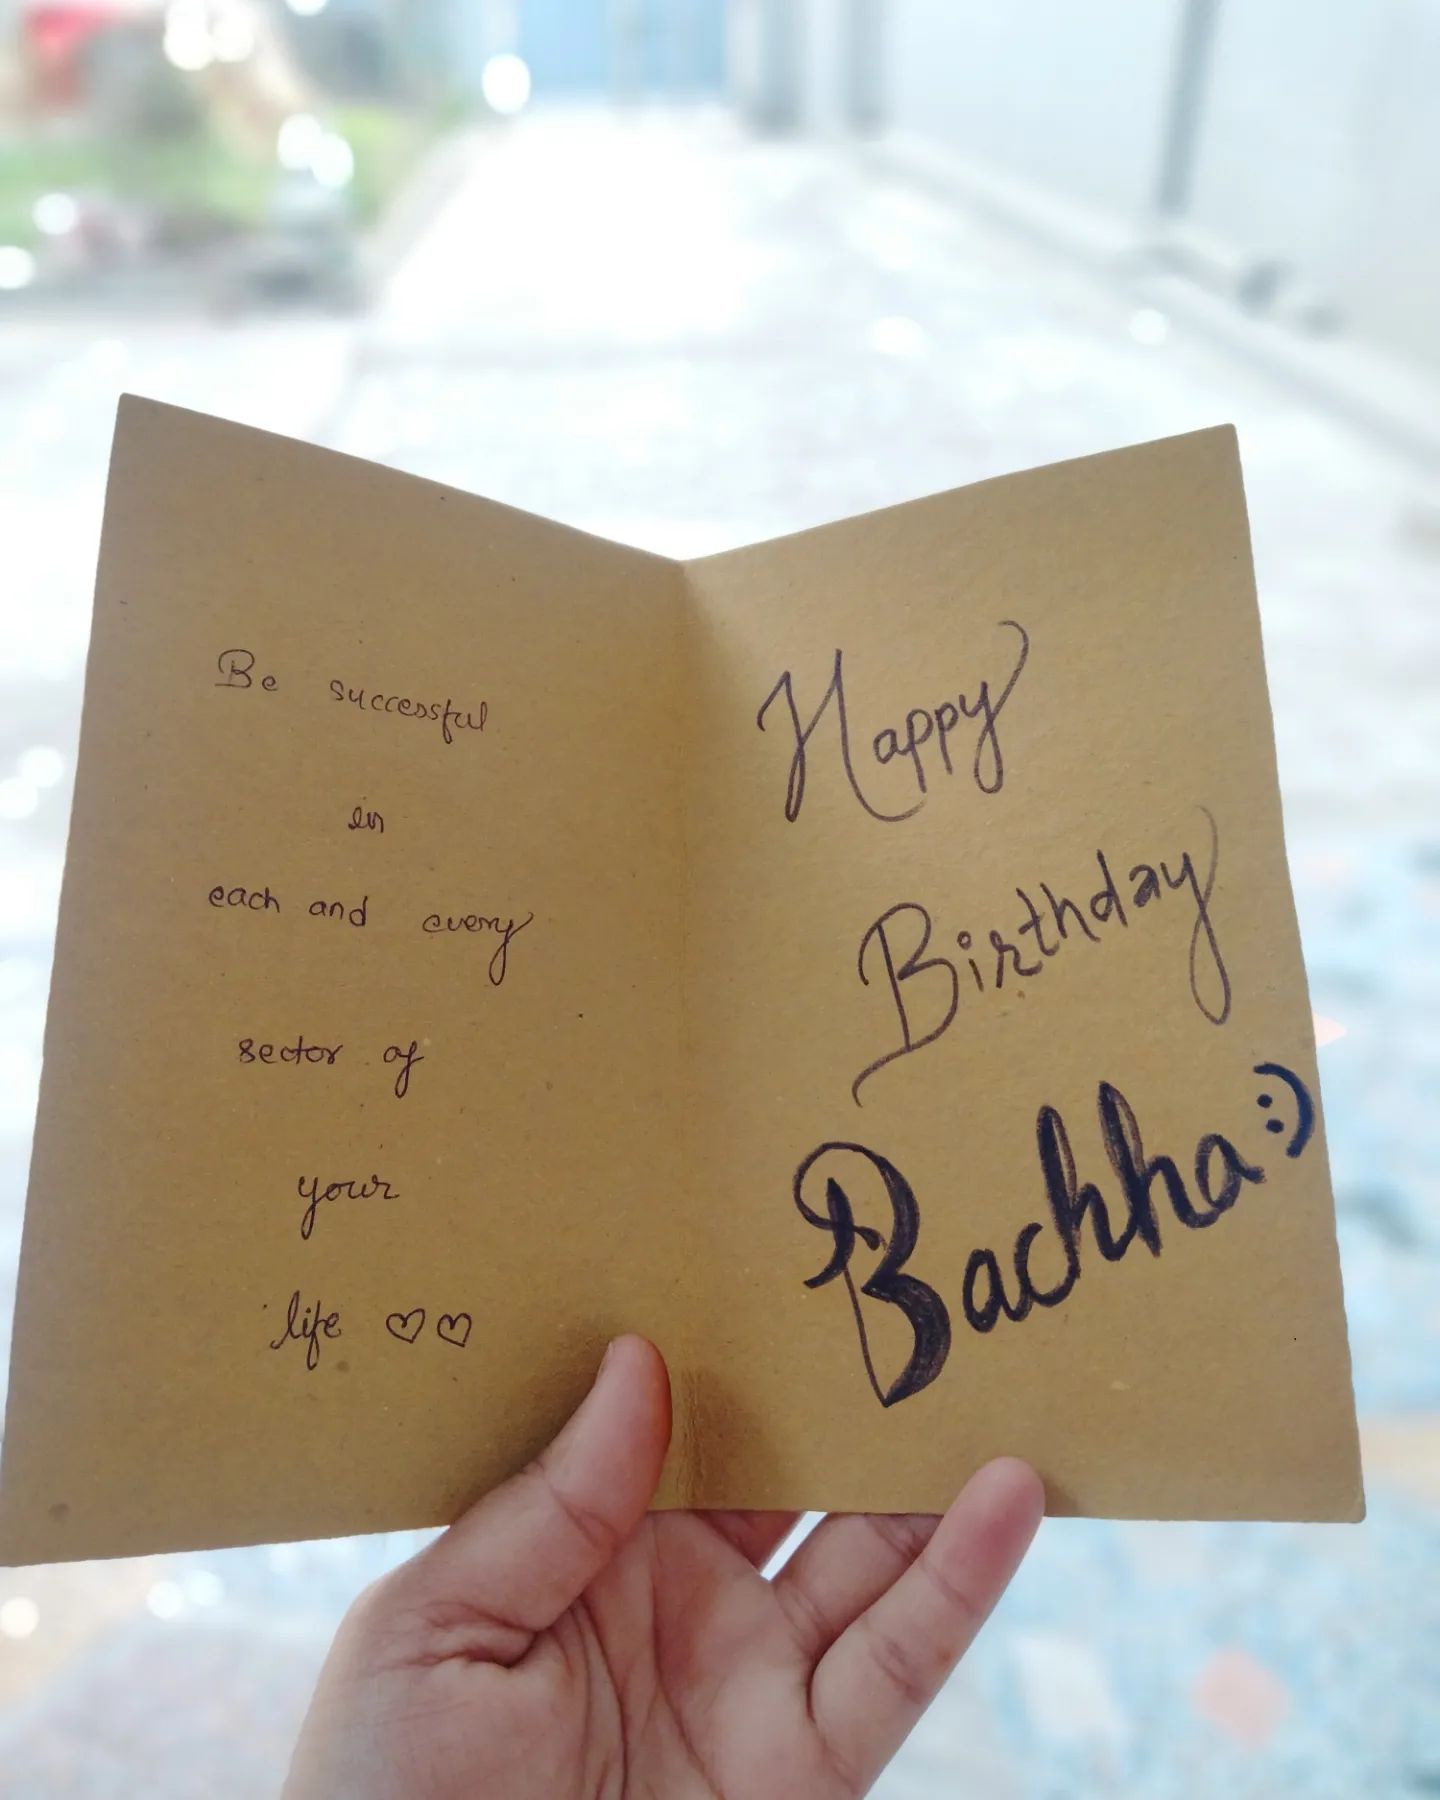 Be successful
in
each and every
sector of
your
life ♡♡
Happy
Birthday
Bachha :)